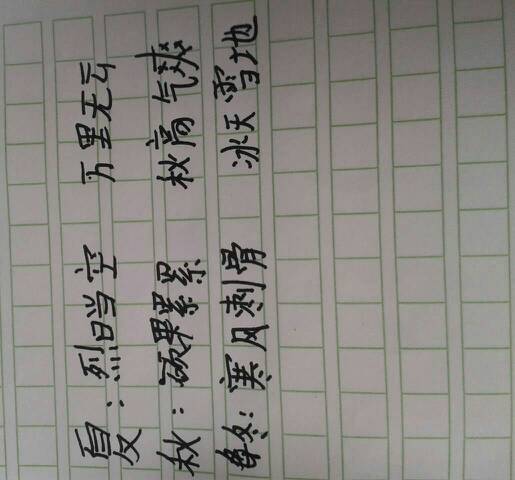 夏：烈日当空 万里无云
秋：硕果累累 秋高气爽
冬：寒风刺骨 冰天雪地